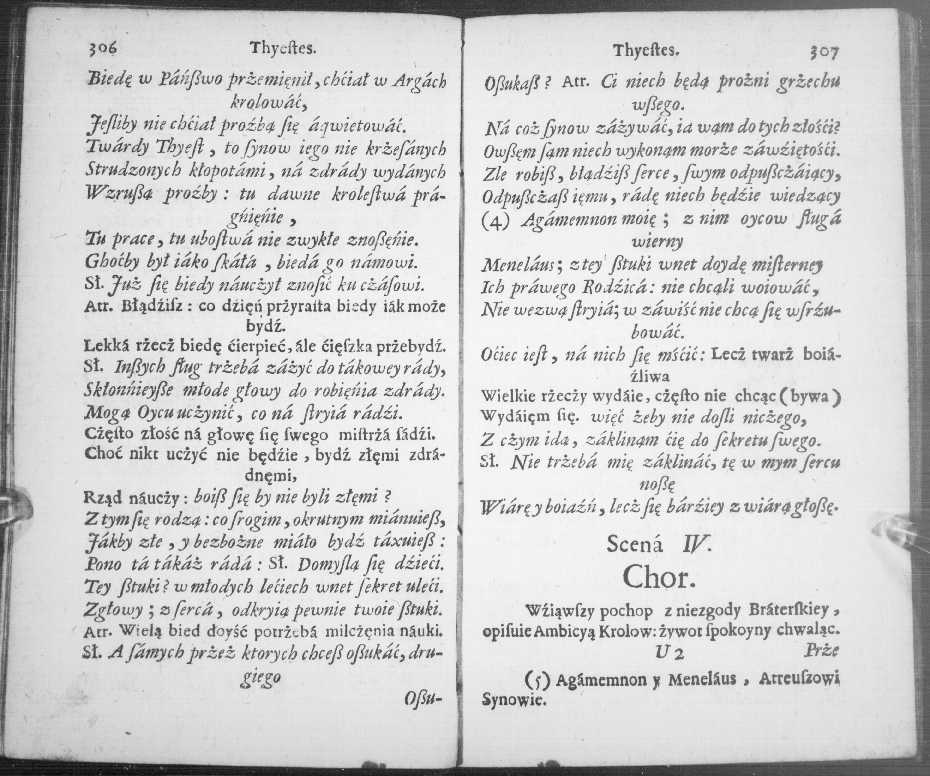 306 Thyeſtes.
Biedę w Páńſſwo przemięnił, chćiał w Argách
krolowáć,
Jeſliby nie chćiał proźbą ſię áqwietowáć.
Twárdy Thyeſt, to ſynow iego nie krżeſánych
Strudzonych kłopotámi, ná zdrády wydánych
Wzruſſą proźby : tu dawne kroleſtwá prá-
gńięńie,
Tu prace, tu uboſtwá nie zwykłe znoſſęńie.
Choćby był iáko ſkáłá, biedá go námowi.
Sł. Już ſię biedy náuczył znoſić ku czáſowi.
Atr. Błądźiſz : co dźięń przyraſta biedy iák może
bydź.
Lekká rżecż biedę ćierpieć, ále ćięſzka przebydź.
Sł. Inſſych ſług trżebá záżyć do tákowey rády,
Skłonńieyſſe młode głowy do robięńia zdrády.
Mogą Oycu uczynić, co ná ſtryiá rádźi.
Cżęſto złość ná głowę ſię ſwego miſtrżá ſádźi.
Choć nikt uczyć nie będźie, bydź złęmi zdrá-
dnęmi,
Rząd náucży : boiſſ ſię by nie byli złęmi ?
Z tym ſię rodzą : co ſrogim, okrutnym miánuieſſ,
Jákby złe, y bezbożne miáło bydź táxuieſſ :
Pono tá tákáż rádá : Sł. Domyſlą ſię dźieći.
Tey ſſtuki ? w młodych lećiech wnet ſekret uleći.
Zgłowy ; z ſercá, odkryią pewnie twoie ſſtuki.
Atr. Wielą bied doyść potrżebá milcżęnia náuki.
Sł. A ſámych przeż ktorych chceſſ oſſukáć, dru-
giego
Oſſu-
Thyeſtes. 307
Oſſukaſſ ? Atr. Ci niech będą prożni grżechu
wſſego.
Ná coż ſynow záżywáć, ia wąm do tych złośći?
Owſſęm ſąm niech wykonąm morże záwźiętośći.
Zle robiſſ, błądźiſſ ſerce, ſwym odpuſſcżáiący,
Odpuſſcżaſſ ięmu, rádę niech będźie wiedzący
(4) Agámemnon moię ; z nim oycow ſługá
wierny
Meneláus ; z tey ſſtuki wnet doydę miſterney
Ich práwego Rodźicá : nie chcąli woiowáć,
Nie wezwą ſtryiá; w záwiść nie chcą ſię wſrżu-
bowáć.
Oćiec ieſt, ná nich ſię mśćić : Lecż twarż boiá-
źliwa
Wielkie rżecży wydáie, cżęſto nie chcąc (bywa)
Wydáięm ſię. więć żeby nie doſli nicżego,
Z cżym idą, záklinąm ćię do ſekretu ſwego.
Sł. Nie trżebá mię záklináć, tę w mym ſercu
noſſę
Wiárę y boiaźń, lecż ſię bárźiey z wiárą głoſſę.
Scená IV.
Chor.
Wźiąwſzy pochop z niezgody Bráterſkiey,
opiſuie Ambicyą Krolow: żywot ſpokoyny chwaląc.
U 2 Prże
(5) Agámemnon y Meneláus, Atreuſzowi
Synowie.